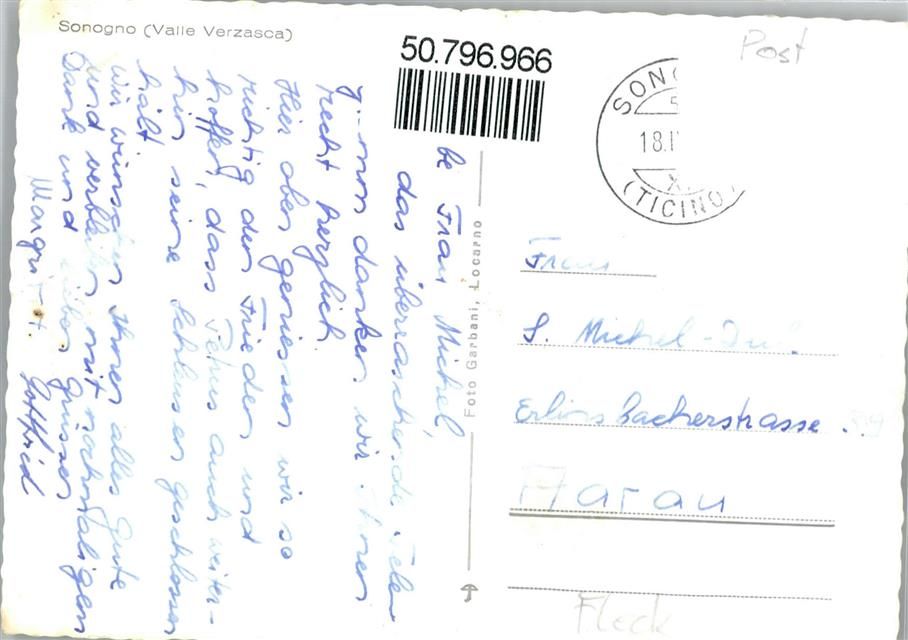 Sonogno (Valle Verzasca)
50.796.966
Post
SONO
18.I
X.
(TICINO)
be Frau Michel,
das überraschende Tele
mon danken wir Ihnen
recht herzlich.
Hier oben geniessen wir so
richtig den Frieden und
hoffen, dass Petrus auch weiter-
hin seine Schleusen geschlossen
hält.
Wir wünschen Ihnen alles Gute
und verbleiben mit nochmaligem
Dank und lieben Grüssen
Margrit + Gottfried
Foto Garbani, Locarno
Frau
S. Michel
Erlinsbacherstrasse
Aarau
Fleck